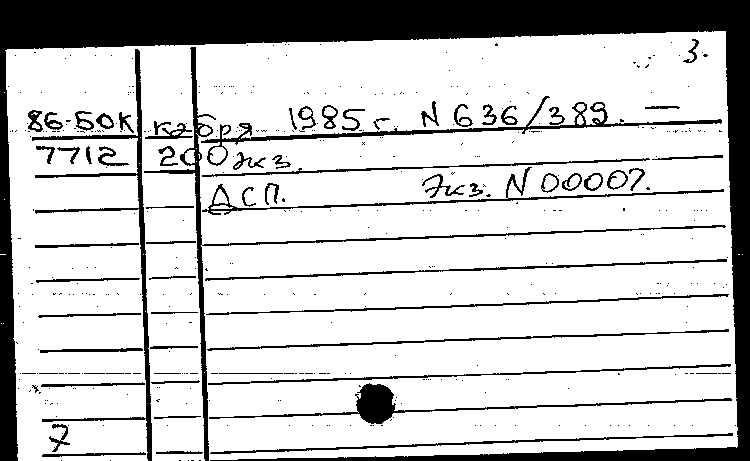 3.
86-50К кабря 1985 г. N 636/389. —
7712 200 экз.
ДСП. Экз. N 00007.
7